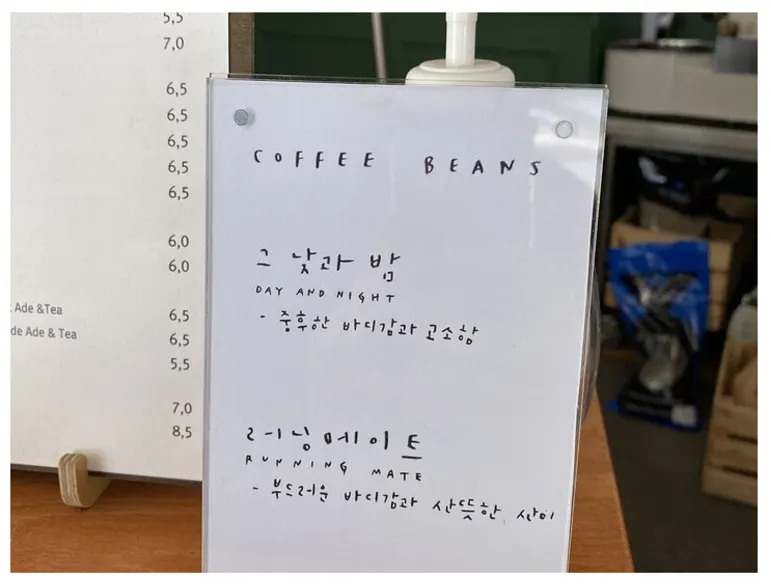 5,5
7,0
6,5
6,5
6,5
6,5
6,5
6,0
6,0
Ade &Tea
6,5
de Ade & Tea
6,5
5,5
7,0
8,5
COFFEE BEANS
그 낮과 밤
DAY AND NIGHT
- 중후한 바디감과 고소함
러닝메이트
RUNNING MATE
- 부드러운 바디감과 산뜻한 산미